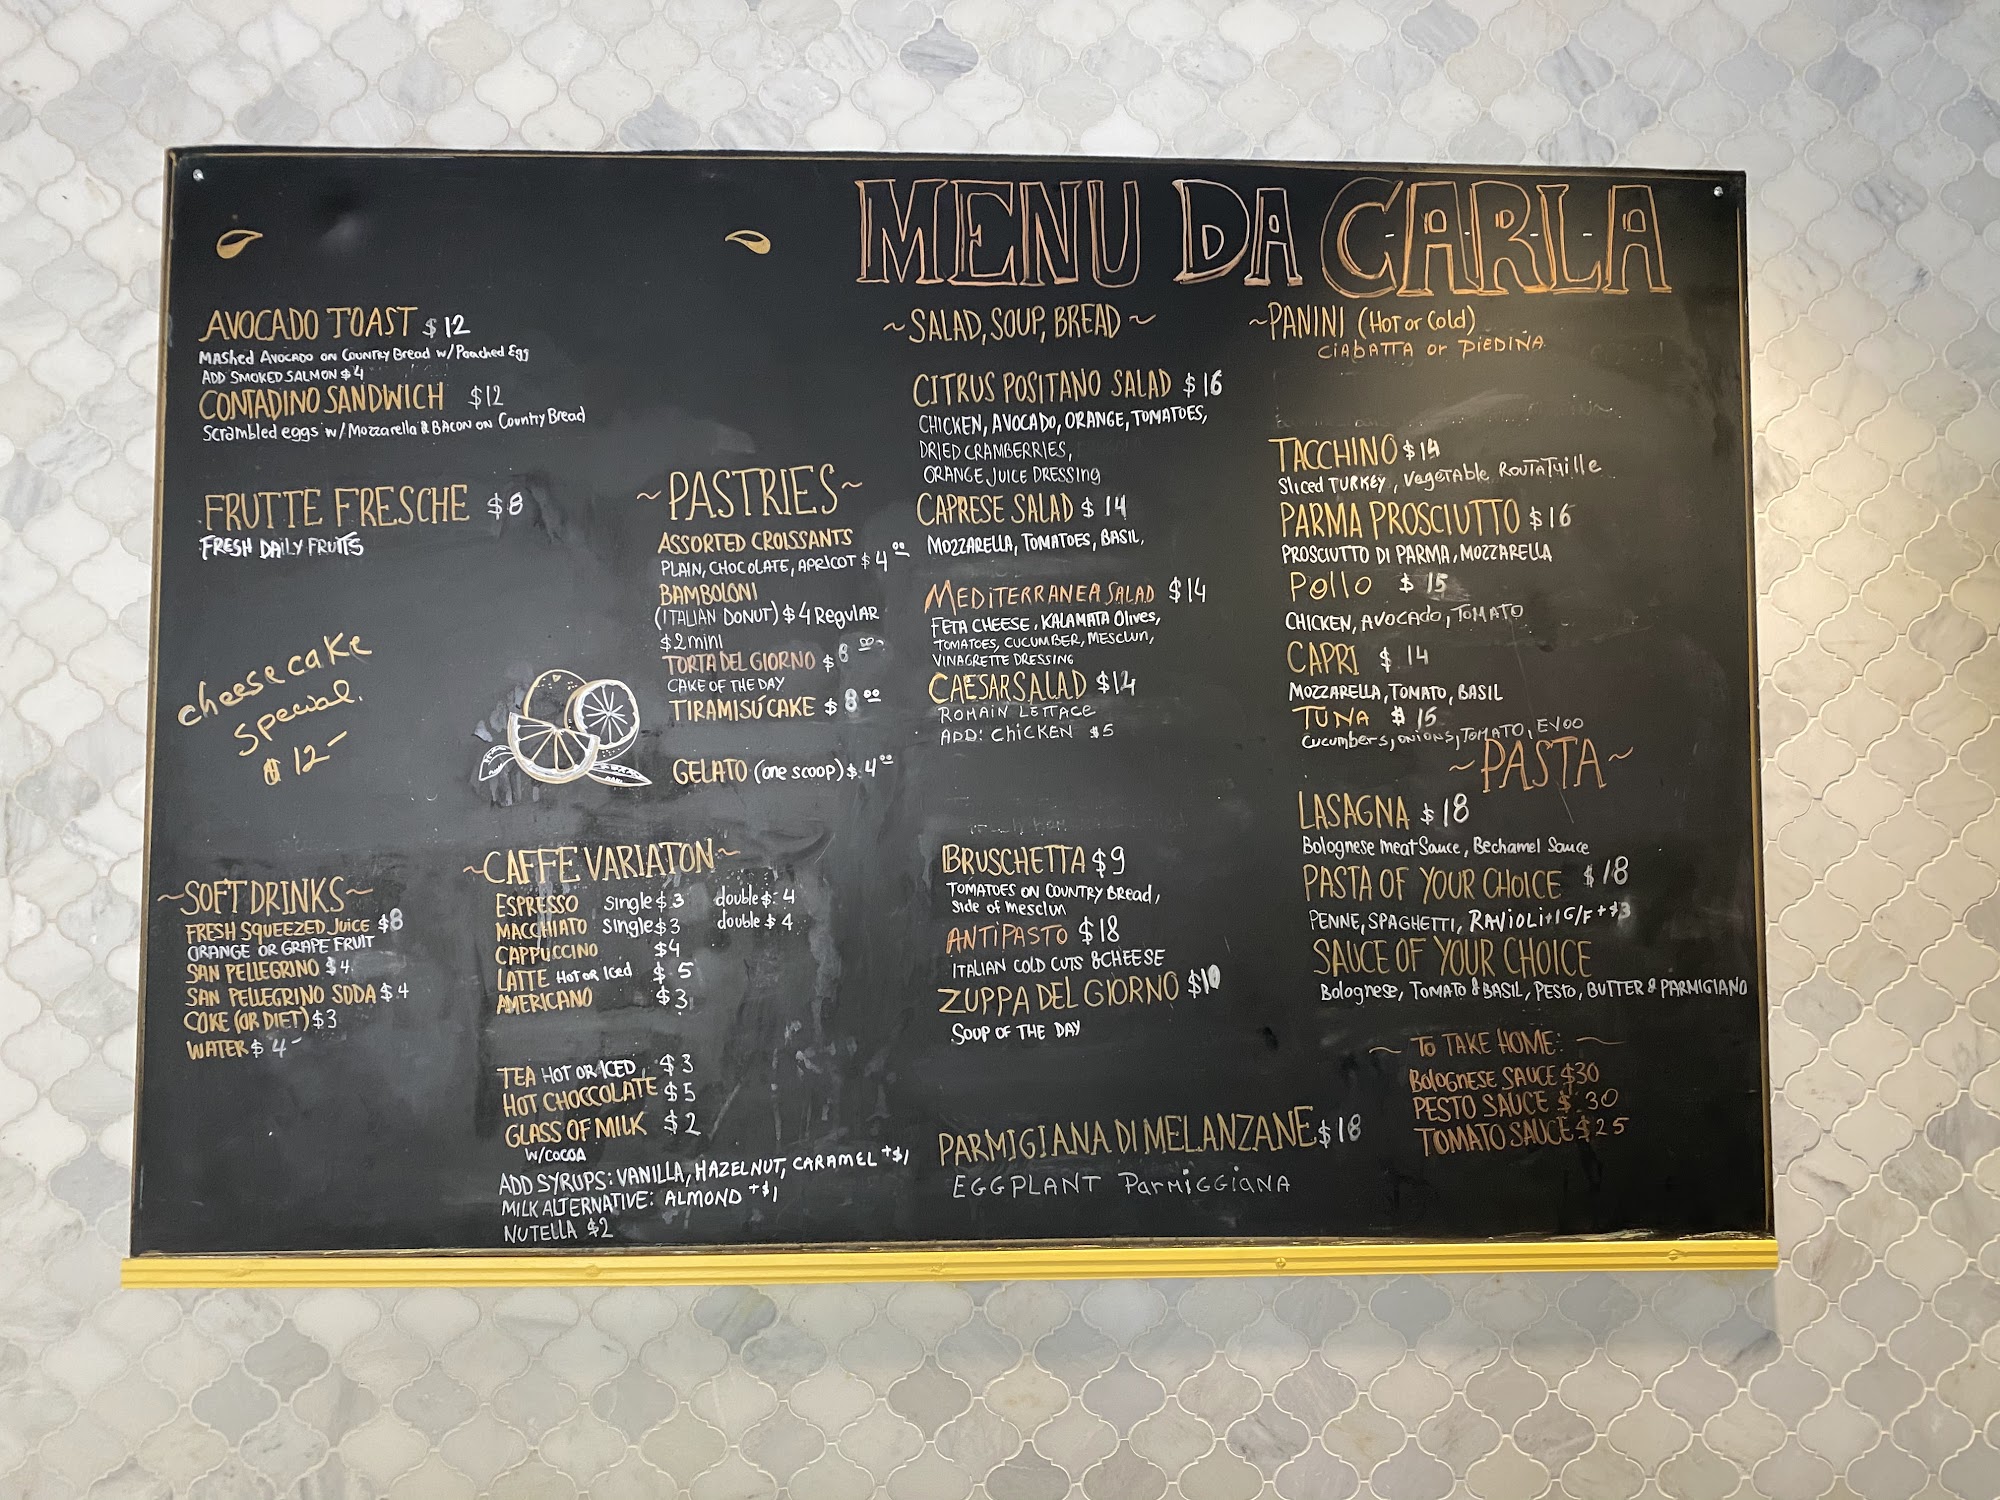 MENU DA C-A-R-L-A
AVOCADO TOAST $12
MAShed AVOCADO ON COUNTRY Bread w/Poached Egg
ADD SMOKED SALMON $4
CONTADINO SANDWICH $12
Scrambled eggs w/Mozzarella & BACON ON Country Bread
FRUTTE FRESCHE $8
FRESH DAILY FRUITS
cheesecake
special.
$12-
~SOFT DRINKS~
FRESH SQUEEZED JUICE $8
ORANGE OR GRAPE FRUIT
SAN PELLEGRINO $4
SAN PELLEGRINO SODA $4
COKE (OR DIET) $3
WATER $4-
~PASTRIES~
ASSORTED CROISSANTS
PLAIN, CHOCOLATE, APRICOT $4.00
BAMBOLONI
(ITALIAN DONUT) $4 Regular
$2 mini
TORTA DEL GIORNO $8.00
CAKE OF THE DAY
TIRAMISÚ CAKE $8.00
GELATO (one scoop) $4.00
~CAFFE VARIATON~
ESPRESSO single $3 double $4
MACCHIATO single $3 double $4
CAPPUCCINO $4
LATTE HOT OR Iced $5
AMERICANO $3
TEA HOT OR ICED $3
HOT CHOCCOLATE $5
GLASS OF MILK $2
W/COCOA
ADD SYRUPS: VANILLA, HAZELNUT, CARAMEL +$1
MILK ALTERNATIVE: ALMOND +$1
NUTELLA $2
~SALAD, SOUP, BREAD~
CITRUS POSITANO SALAD $16
CHICKEN, AVOCADO, ORANGE, TOMATOES,
DRIED CRAMBERRIES,
ORANGE JUICE DRESSING
CAPRESE SALAD $14
MOZZARELLA, TOMATOES, BASIL,
MEDITERRANEA SALAD $14
FETA CHEESE, KALAMATA Olives,
TOMATOES, CUCUMBER, MESCLUN,
VINAGRETTE DRESSING
CAESAR SALAD $12
ROMAIN LETTACE
ADD: CHICKEN $5
BRUSCHETTA $9
TOMATOES ON COUNTRY Bread,
side of mesclun
ANTIPASTO $18
ITALIAN COLD CUTS & CHEESE
ZUPPA DEL GIORNO $10
SOUP OF THE DAY
PARMIGIANA DI MELANZANE $18
EGGPLANT PARMIGGIANA
~PANINI (HOT or Cold)
CIABATTA or PIEDINA
TACCHINO $14
Sliced TURKEY, VegeTABLE ROUTATUille
PARMA PROSCIUTTO $16
PROSCIUTTO DI PARMA, MOZZARELLA
POLLO $15
CHICKEN, AVOCADO, TOMATO
CAPRI $14
MOZZARELLA, TOMATO, BASIL
TUNA $15
Cucumbers, ONIONS, TOMATO, EVOO
~PASTA~
LASAGNA $18
Bolognese meat Sauce, Bechamel Sauce
PASTA OF YOUR CHOICE $18
PENNE, SPAGHETTI, RAViOLi+1 G/F +$3
SAUCE OF YOUR CHOICE
Bolognese, TOMATO & BASIL, PESTO, BUTTER & PARMIGIANO
~ TO TAKE HOME: ~
BOLOGNESE SAUCE $30
PESTO SAUCE $30
TOMATO SAUCE $25